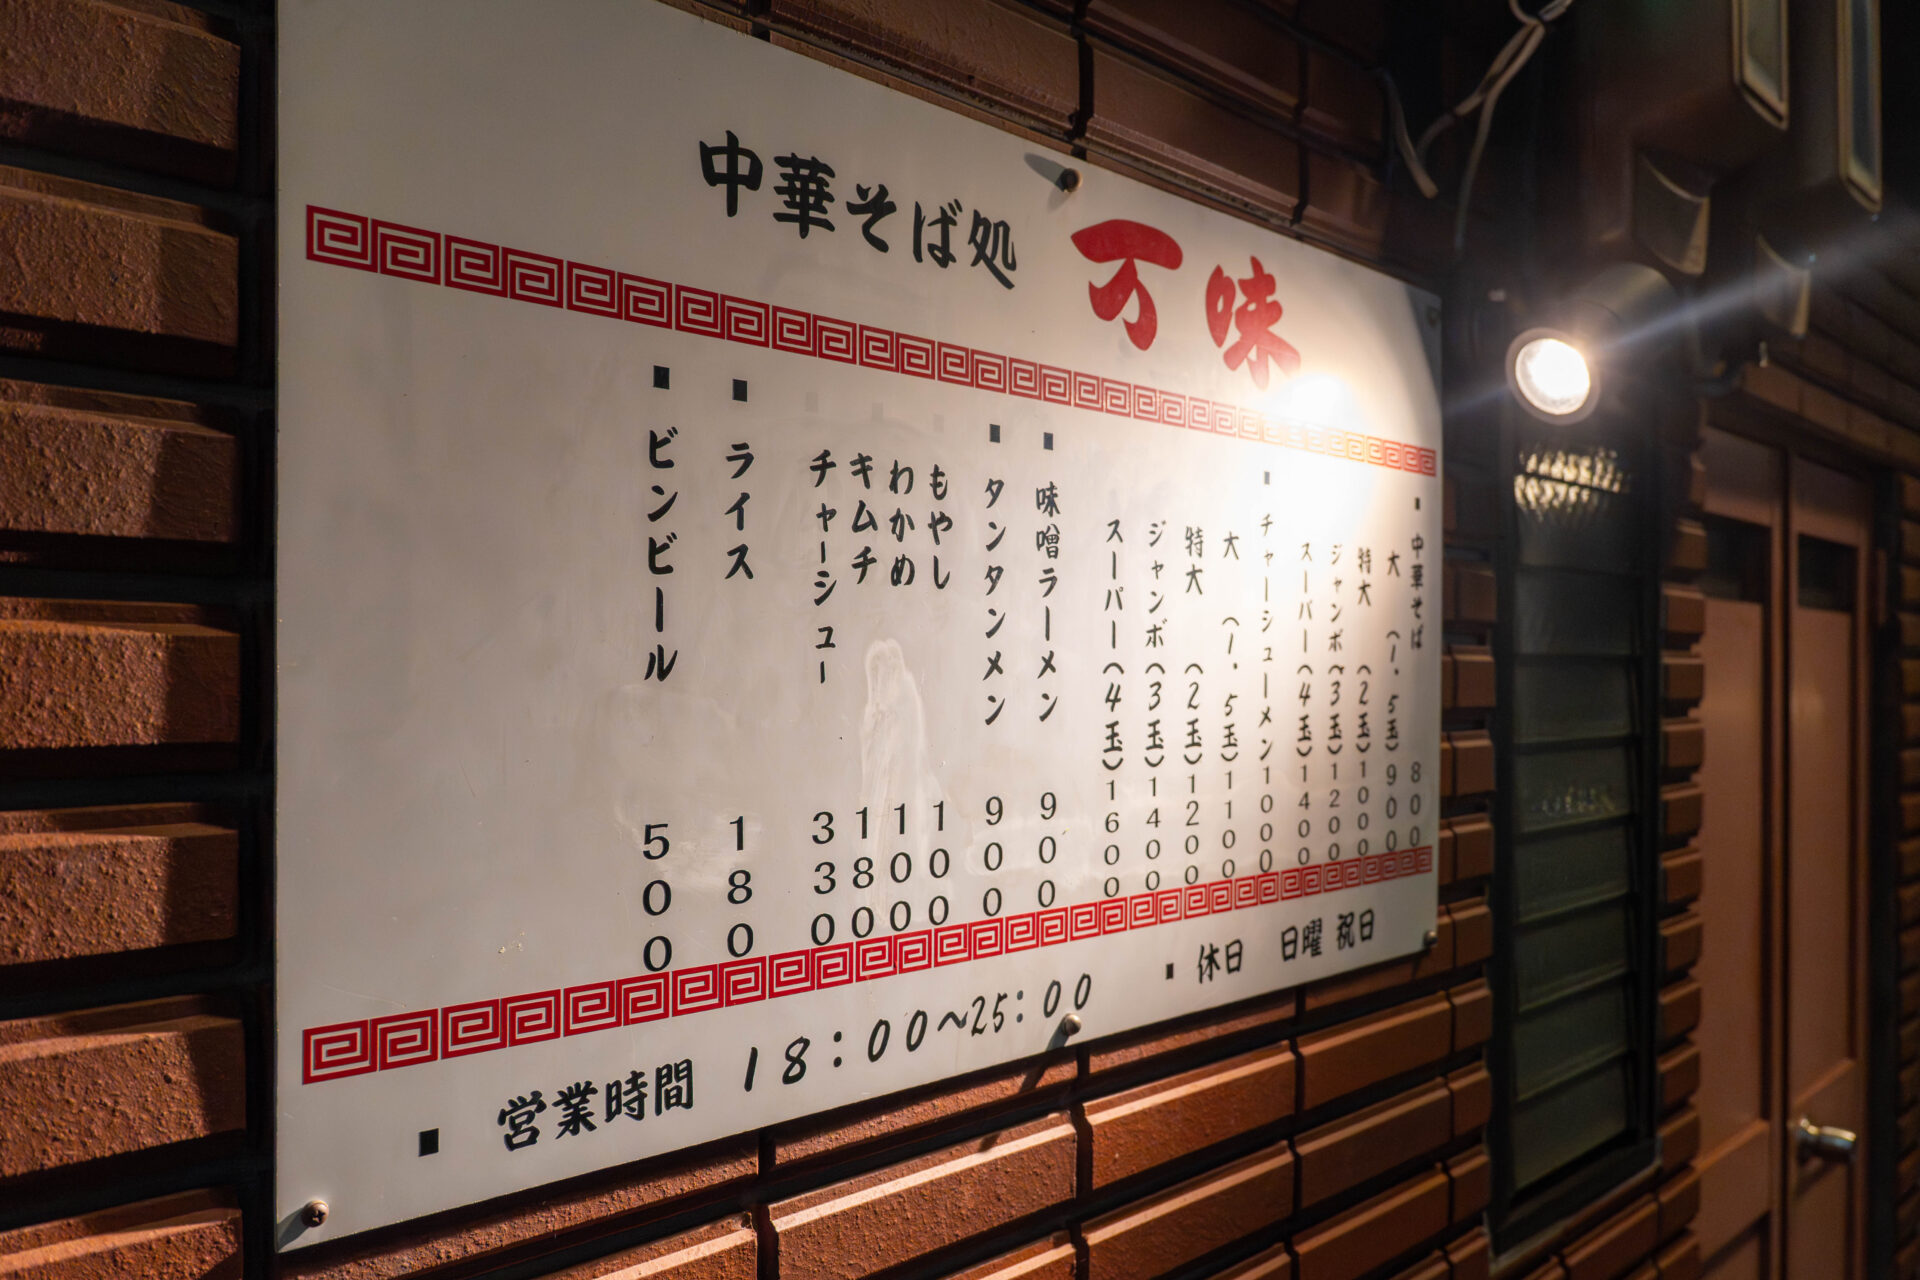 中華そば処 万味
▪中華そば 800
大 (1.5玉) 900
特大 (2玉) 1000
ジャンボ(3玉) 1200
スーパー(4玉) 1400
▪チャーシューメン 1000
大 (1.5玉) 1100
特大 (2玉) 1200
ジャンボ(3玉) 1400
スーパー(4玉) 1600
▪味噌ラーメン 900
▪タンタンメン 900
もやし 100
わかめ 100
キムチ 180
チャーシュー 330
▪ライス 180
▪ビンビール 500
▪営業時間 18:00〜25:00 ▪休日 日曜 祝日